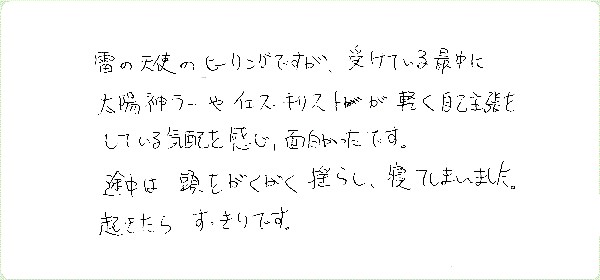 雷の天使のヒーリングですが、受けている最中に
太陽神ラーやイエス・キリストが軽く自己主張を
している気配を感じ、面白かったです。
途中は頭をがくがく揺らし、寝てしまいました。
起きたらすっきりです。